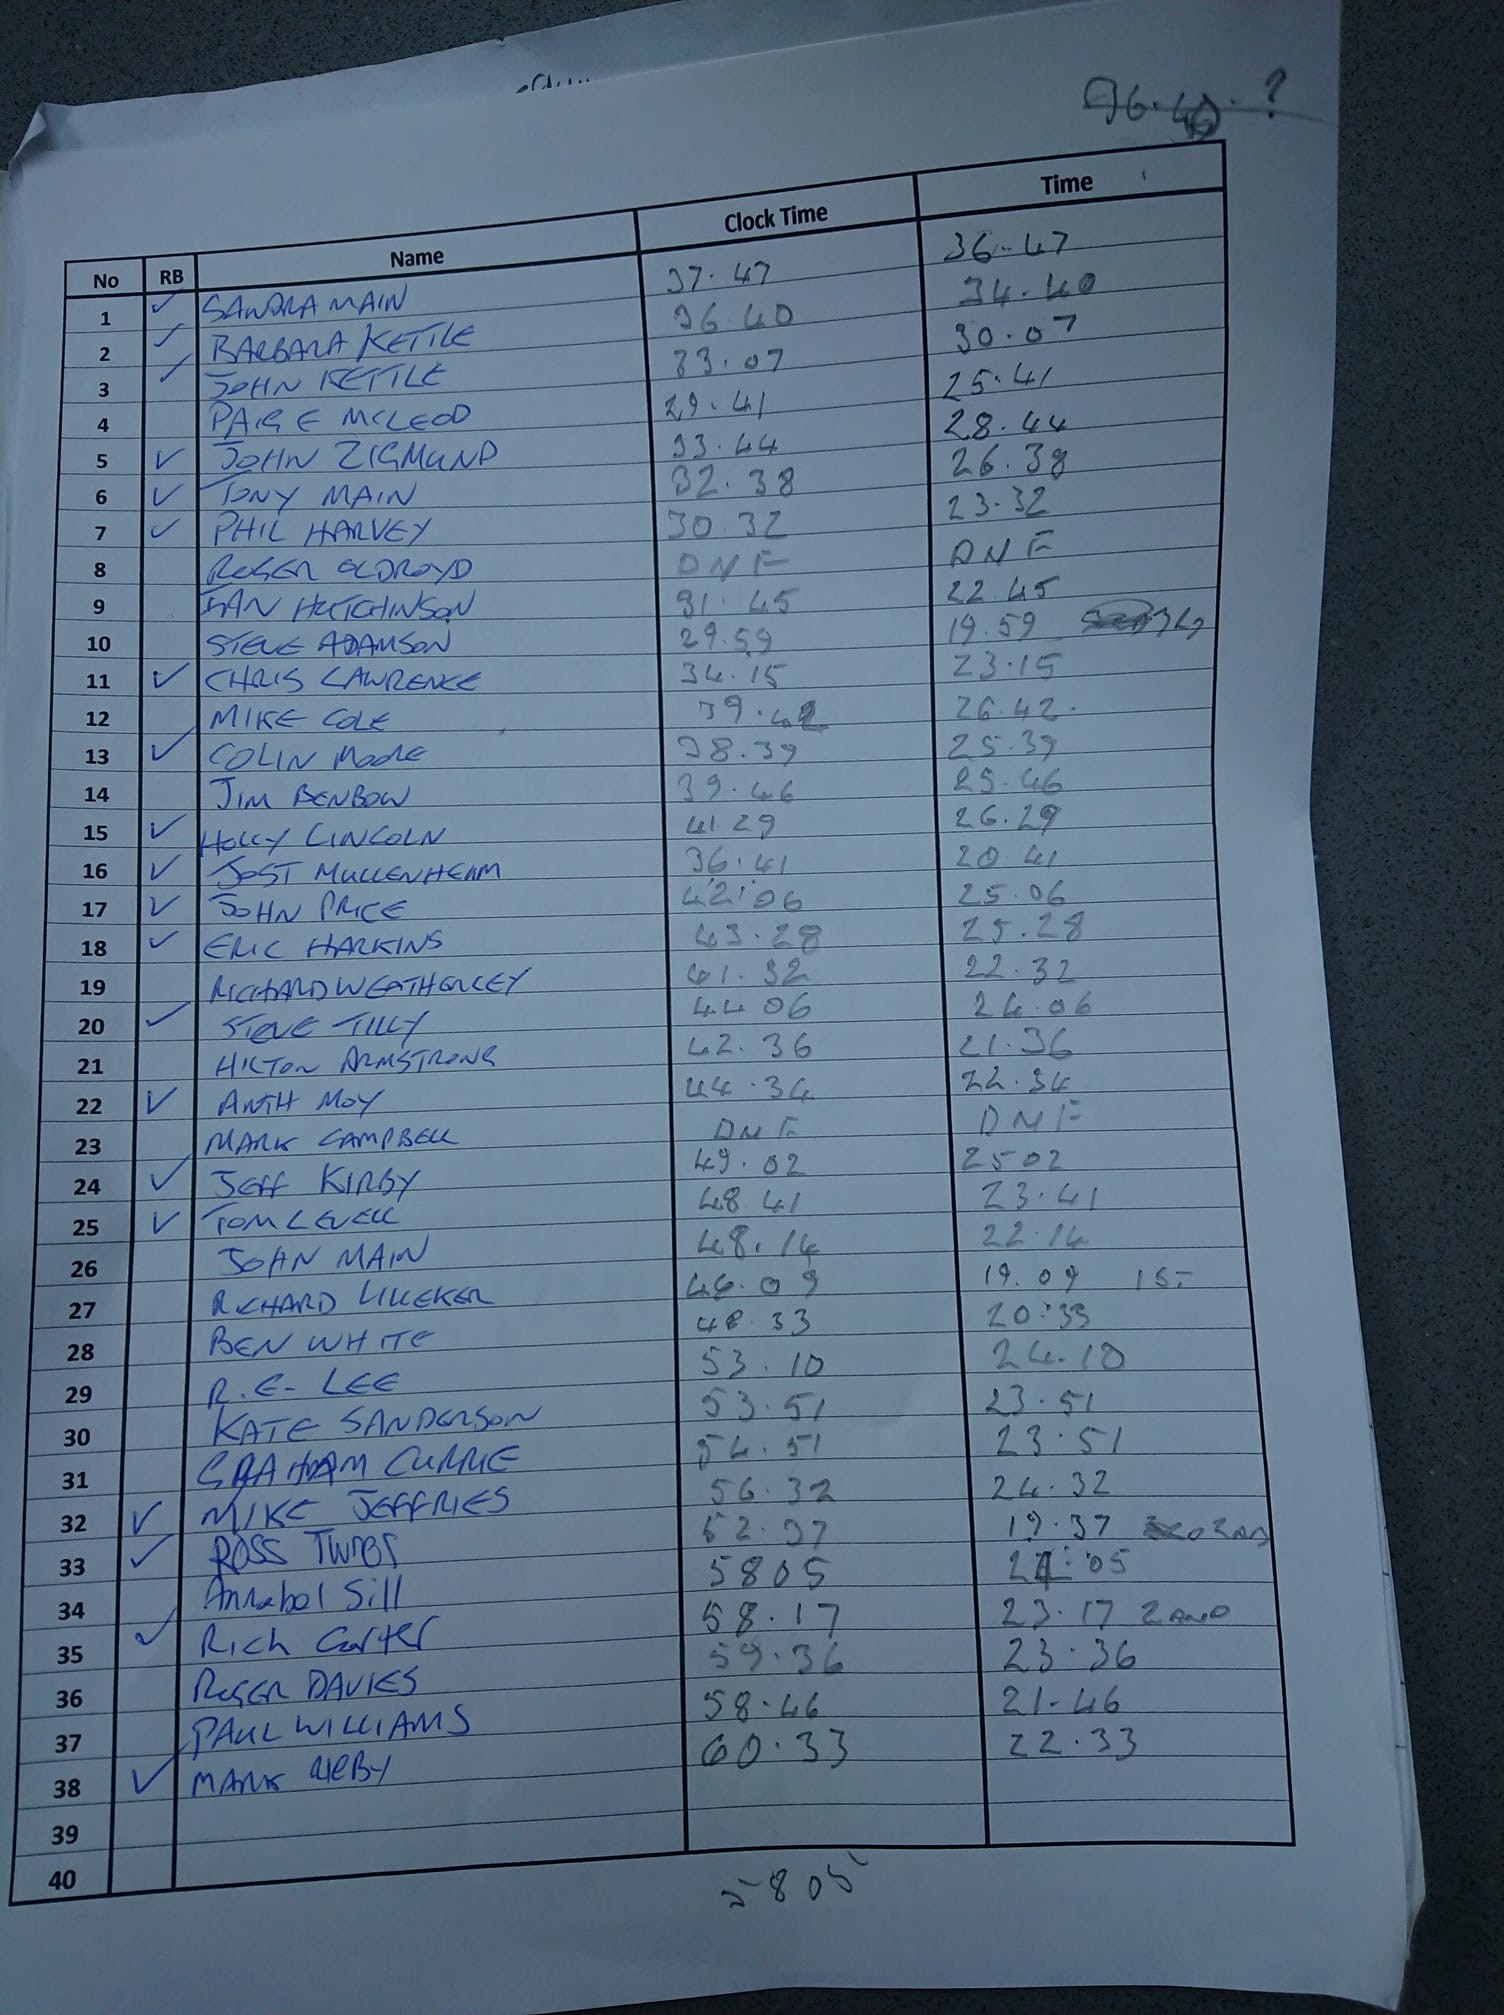 96.40.?
No RB Name Clock Time Time
1 ✓ SANDRA MAIN 37.47 36.47
2 ✓ BARBARA KETTLE 36.40 34.40
3 ✓ JOHN KETTLE 33.07 30.07
4 PAIGE MCLEOD 29.41 25.41
5 ✓ JOHN ZIGMUND 33.44 28.44
6 ✓ TONY MAIN 32.38 26.38
7 ✓ PHIL HARVEY 30.32 23.32
8 ROGER OLDROYD DNF DNF
9 IAN HUTCHINSON 31.45 22.45
10 STEVE ADAMSON 29.59 19.59
11 ✓ CHRIS LAWRENCE 34.15 23.15
12 MIKE COLE 39.42 26.42.
13 ✓ COLIN MOORE 38.39 25.39
14 JIM BENBOW 39.46 25.46
15 ✓ HOLLY LINCOLN 41.29 26.29
16 ✓ JOST MULLENHEAM 36.41 20.41
17 ✓ JOHN PRICE 42.06 25.06
18 ✓ ERIC HARKINS 43.28 25.28
19 RICHARD WEATHERLEY 41.32 22.32
20 ✓ STEVE TILLY 44 06 24.06
21 HILTON ARMSTRONG 42.36 21.36
22 ✓ ANTH MOY 44.34 22.34
23 MARK CAMPBELL DNF DNF
24 ✓ JEFF KIRBY 49.02 25 02
25 ✓ TOM LEVELL 48 41 23.41
26 JOHN MAIN 48.14 22.14
27 RICHARD LILLEKER 46.09 19.09 1ST
28 BEN WHITE 48.33 20:33
29 R.E. LEE 53.10 24.10
30 KATE SANDERSON 53.51 23.51
31 GRAHAM CURRIE 54.51 23.51
32 ✓ MIKE JEFFRIES 56.32 24.32
33 ✓ ROSS 52.37 19.37
34 Annabel Sill 5805 24:05
35 ✓ Rich Carter 58.17 23.17 2AND
36 ROGER DAVIES 59.36 23.36
37 PAUL WILLIAMS 58.46 21.46
38 ✓ MARK 60.33 22.33
39
40
5805